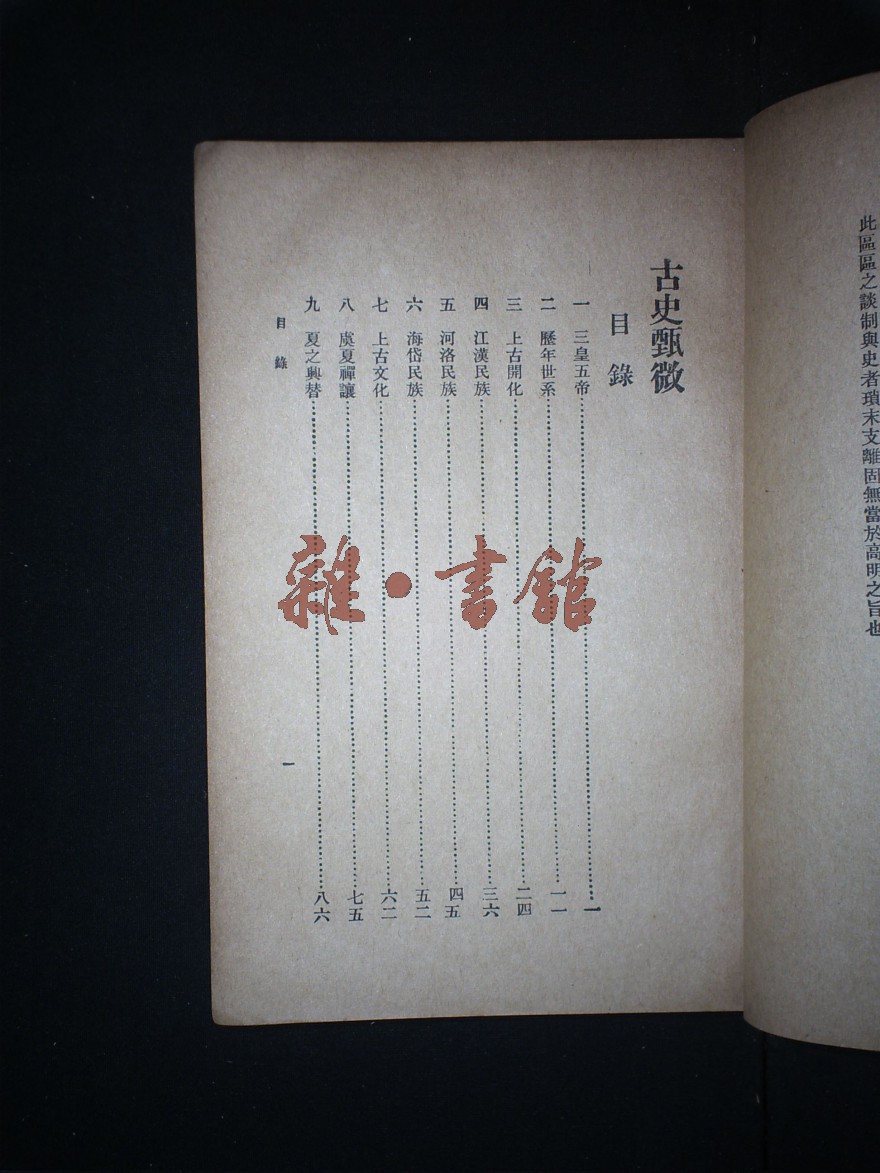 此區區之談制與史者瑣末支離固無當於高明之旨也
古史甄微
目錄
一 三皇五帝 一
二 歷年世系 一一
三 上古開化 二四
四 江漢民族 三六
五 河洛民族 四五
六 海岱民族 五二
七 上古文化 六二
八 虞夏禪讓 七五
九 夏之興替 八六
目錄 一
雜·書館